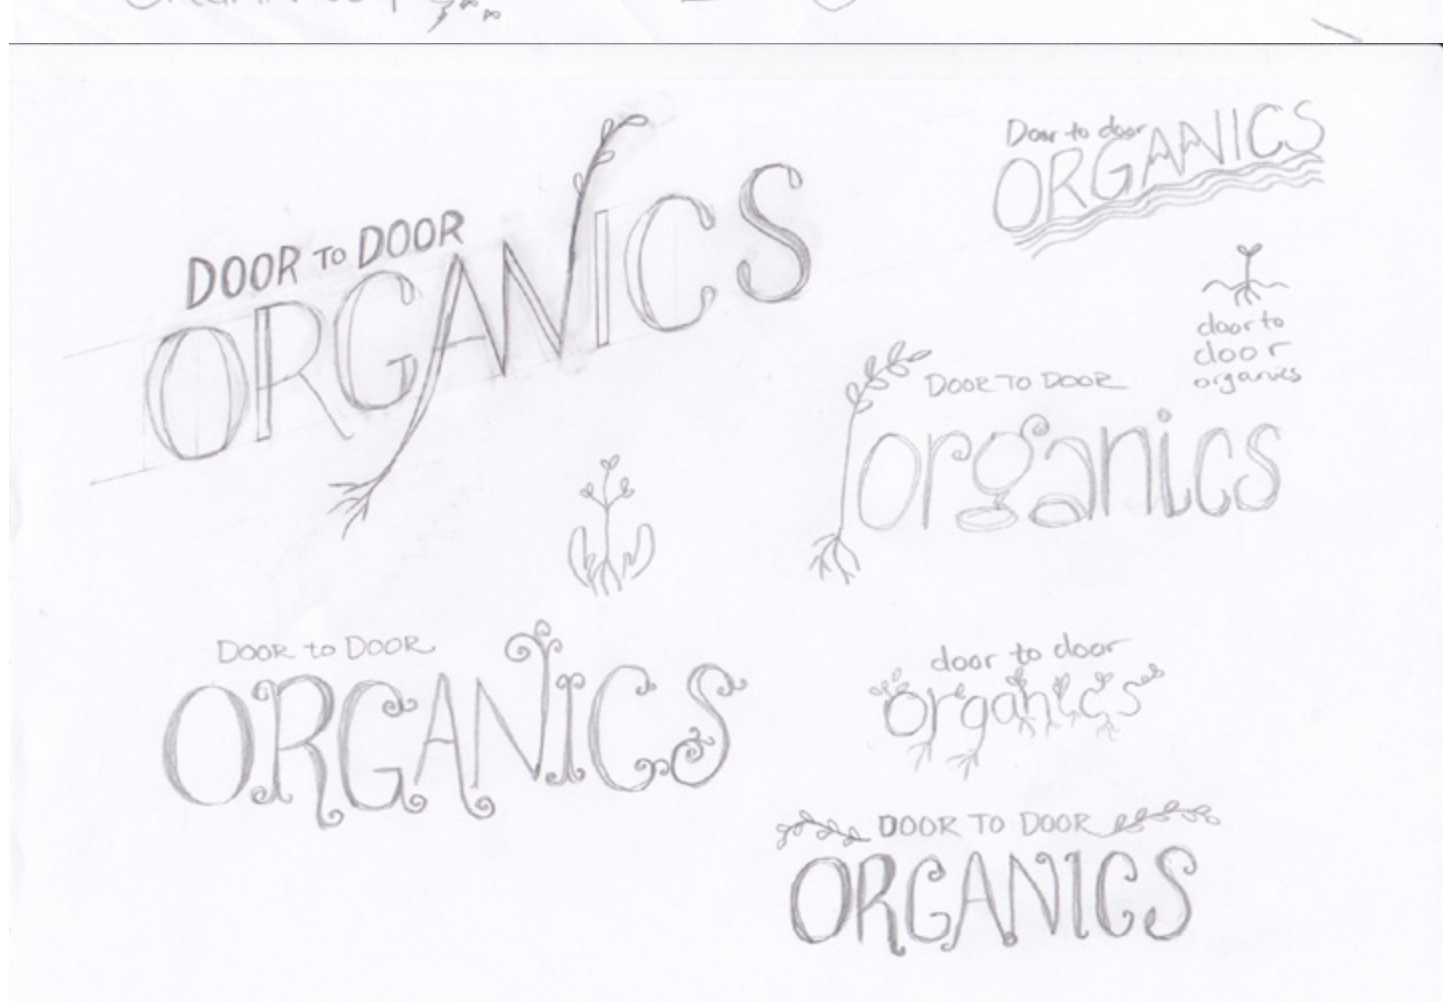 DOOR TO DOOR
ORGANICS
Door to door
ORGANICS
door to
door
organics
DOOR TO DOOR
organics
DOOR to DOOR
ORGANICS
door to door
organics
DOOR TO DOOR
ORGANICS